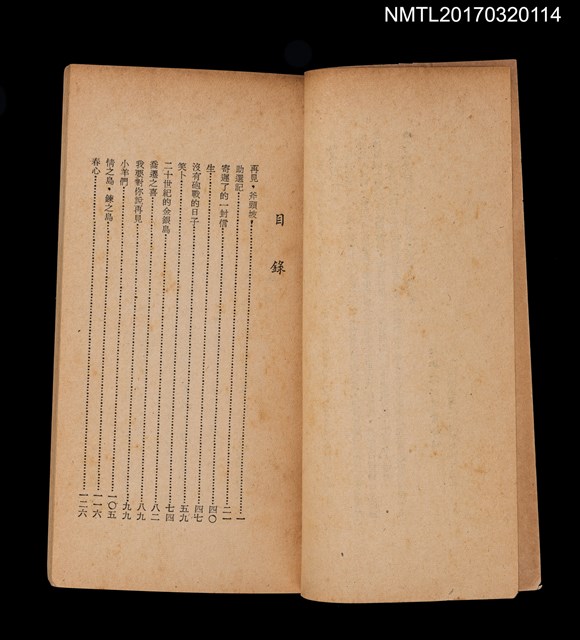 NMTL20170320114
目錄
再見・斧頭坡…………一
助選記…………二一
寄遲了的一封信…………四〇
生…………四七
沒有砲戰的日子…………五九
笑卜…………七四
二十世紀的金銀島…………八二
喬遷之喜…………八九
我要對你說再見…………九九
小羊們…………一〇五
情之島・鍊之島…………一一六
春心…………一二六